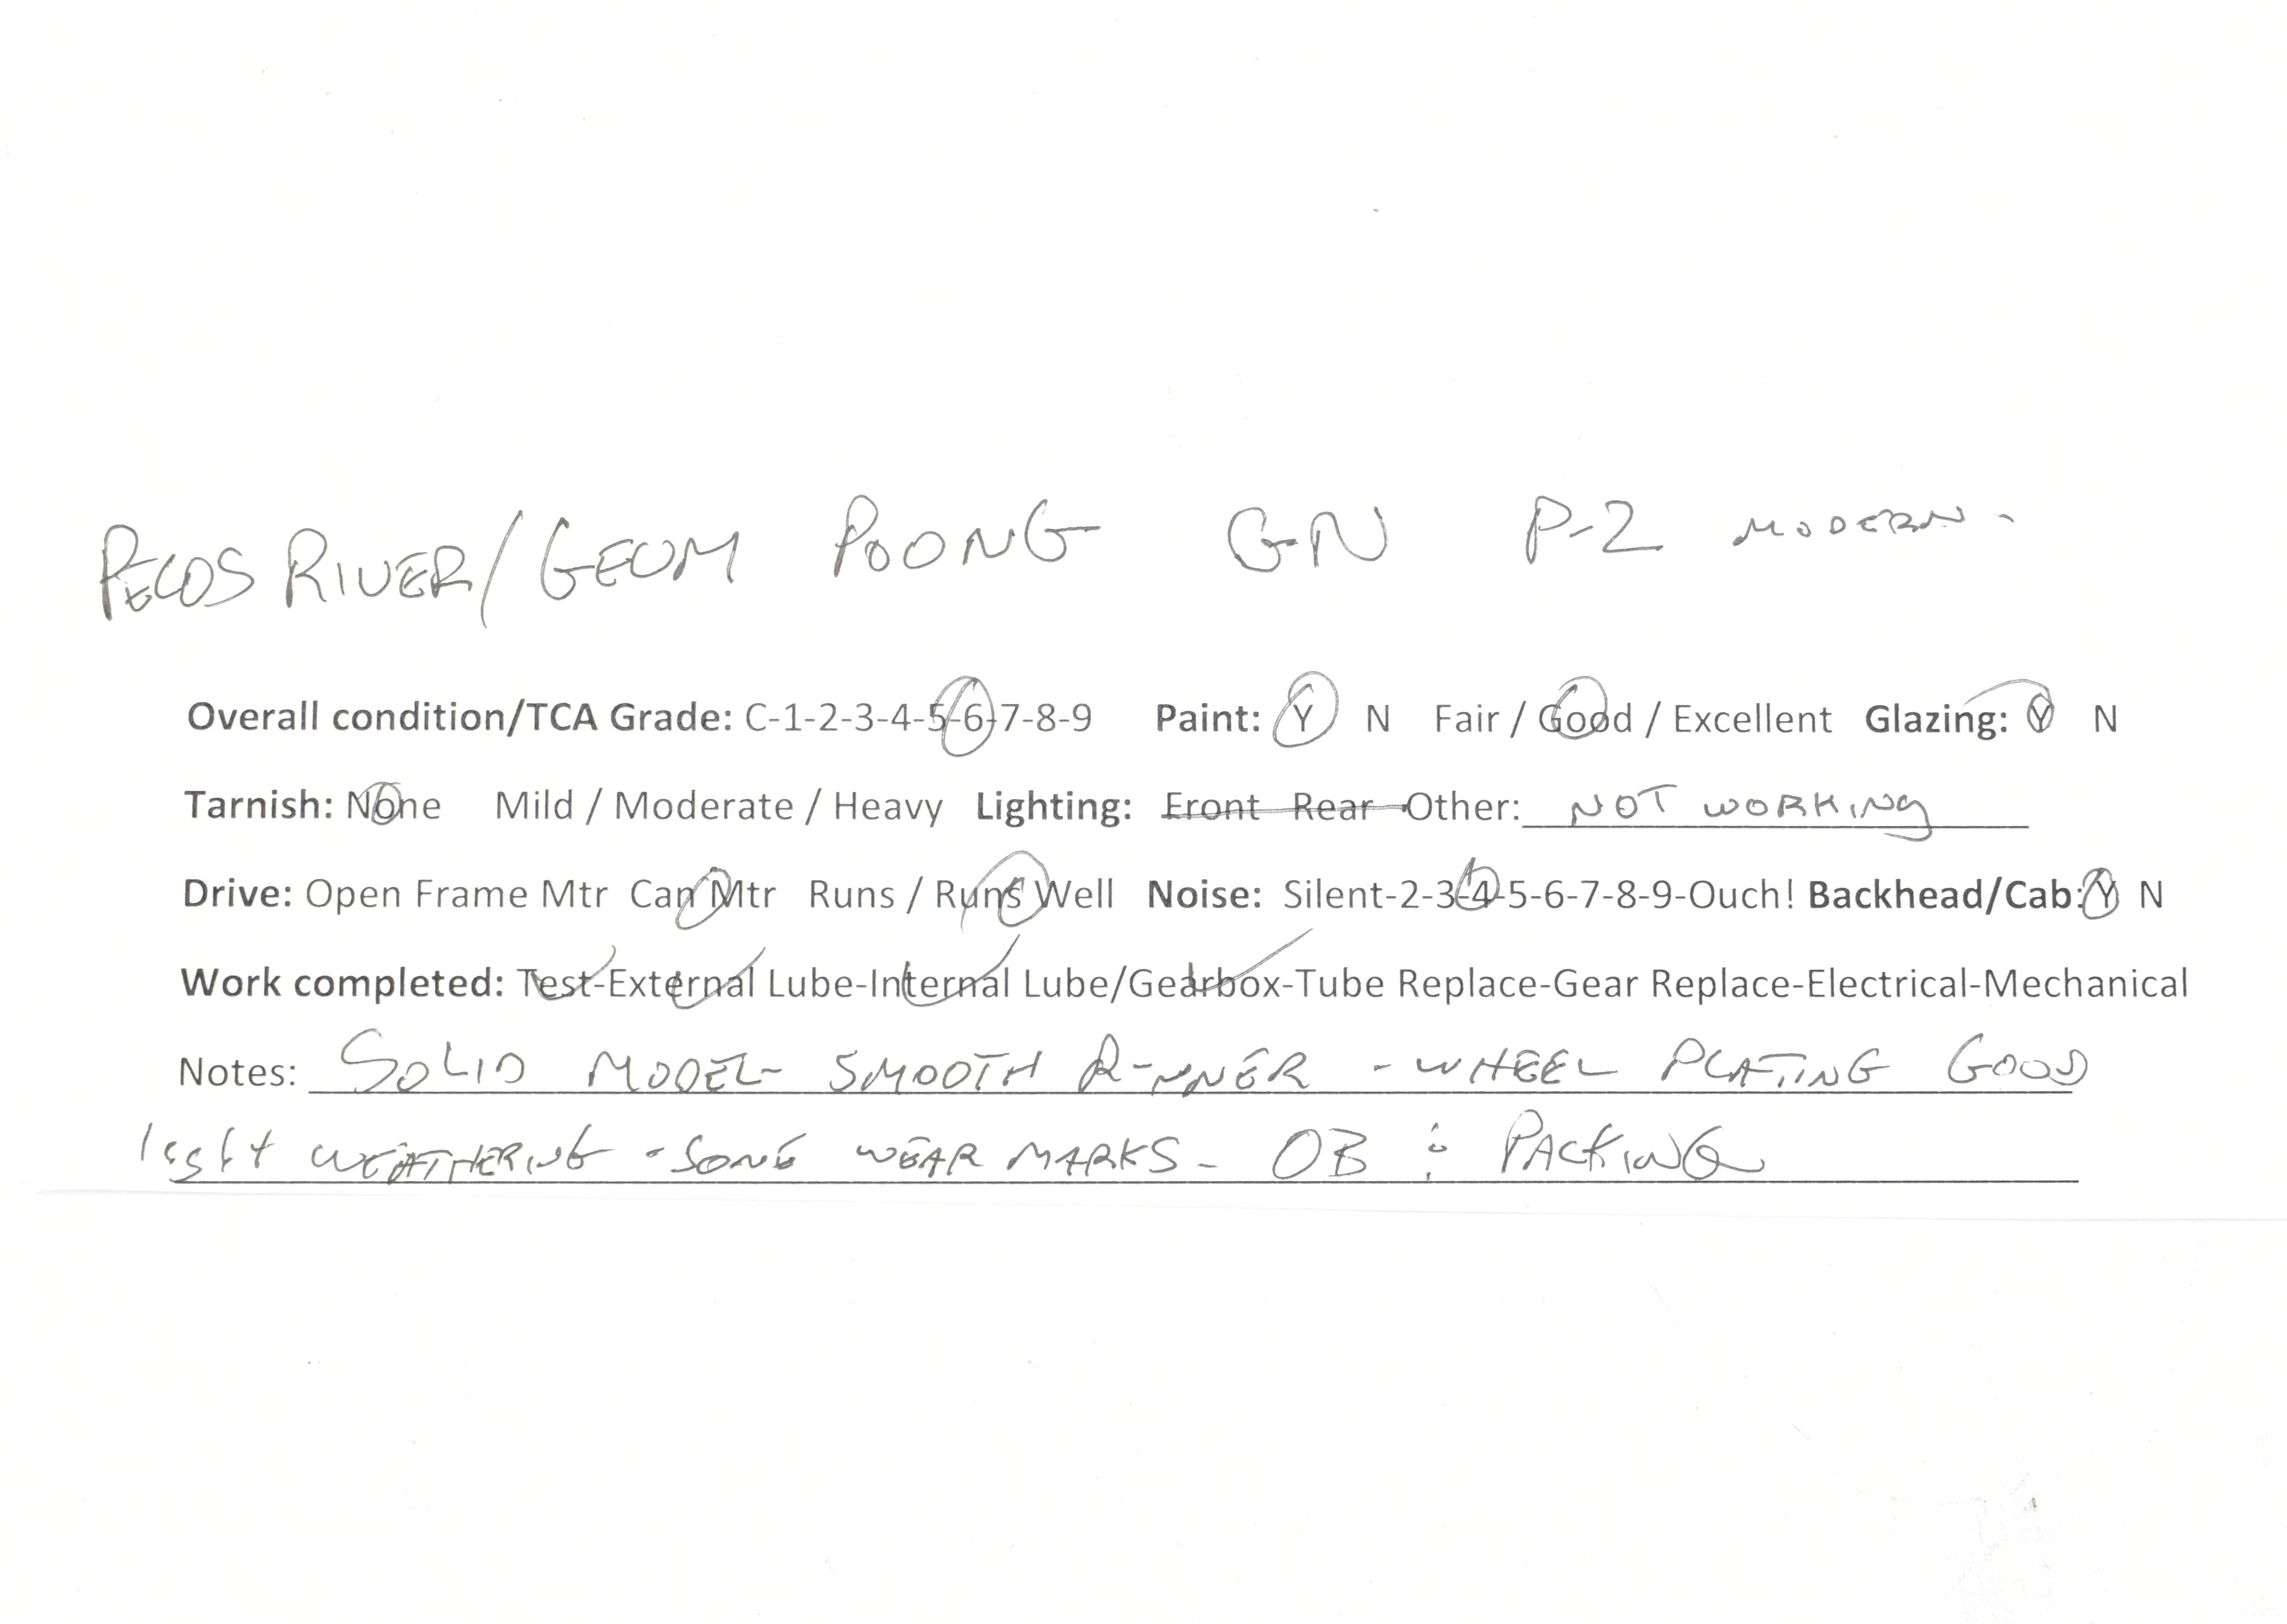 PECOS RIVER/GEOM POONG GN P-2 MODERN-
Overall condition/TCA Grade: C-1-2-3-4-5-6-7-8-9 Paint: Y N Fair / Good / Excellent Glazing: Y N
Tarnish: None Mild / Moderate / Heavy Lighting: Front Rear Other: NOT WORKING
Drive: Open Frame Mtr Can Mtr Runs / Runs Well Noise: Silent-2-3-4-5-6-7-8-9-Ouch! Backhead/Cab: Y N
Work completed: Test-External Lube-Internal Lube/Gearbox-Tube Replace-Gear Replace-Electrical-Mechanical
Notes: SOLID MODEL- SMOOTH RUNNER - WHEEL PLATING GOOD
light WEATHERING - SOME WEAR MARKS - OB & PACKING